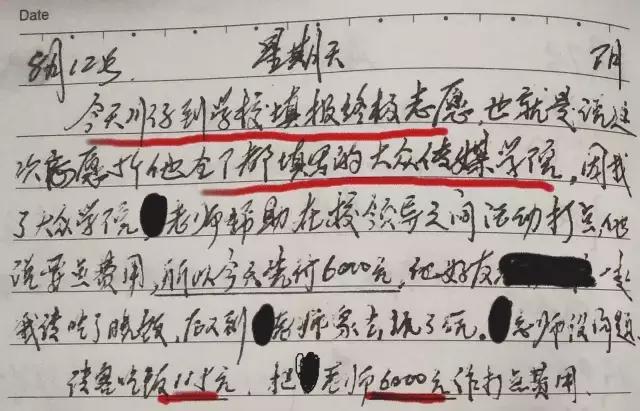 Date
8月12号 星期天 阴
今天川仔到学校填报终极志愿,也就是说这
次志愿他全了都填写的大众传媒学院,因我
了大众学院,老师帮助在校领导之间活动打点,他
说要点费用,所以今天先付6000元,他好友
我请吃了晚饭,后又到老师家去玩了玩。老师没问题。
请客吃饭115元,把老师6000元作打点费用.